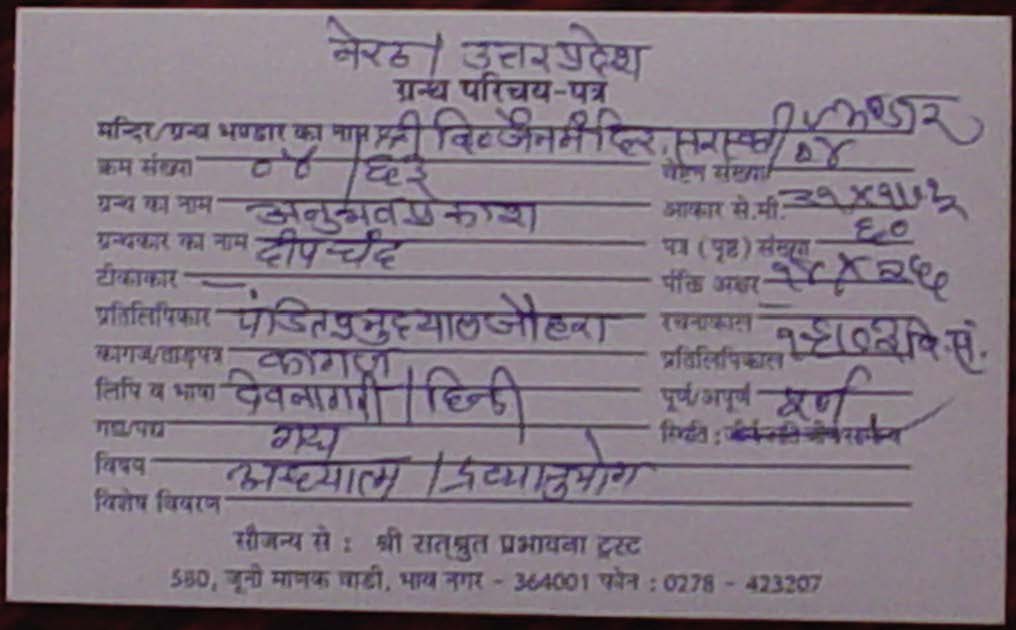 मेरठ / उत्तर प्रदेश
ग्रन्थ परिचय-पत्र
मन्दिर/ग्रन्थ भण्डार का नाम श्री दि० जैन मंदिर, सरस्वती भण्डार
क्रम संख्या ०४ / ६३ वेष्टन संख्या ०४
ग्रन्थ का नाम अनुभव प्रकाश आकार से.मी.
ग्रन्थकार का नाम दीपचंद पत्र (पृष्ठ) संख्या ६०
टीकाकार — पंक्ति अक्षर
प्रतिलिपिकार पंडित जौहरा रचनाकाल —
कागज/ताड़पत्र कागज प्रतिलिपिकाल वि. सं.
लिपि व भाषा देवनागरी / हिन्दी पूर्ण/अपूर्ण पूर्ण
गद्य/पद्य गद्य स्थिति :
विषय अध्यात्म / द्रव्यानुयोग
विशेष विवरण
सौजन्य से : श्री सत्श्रुत प्रभावना ट्रस्ट
580, जूनी माणक वाडी, भाव नगर - 364001 फोन : 0278 - 423207